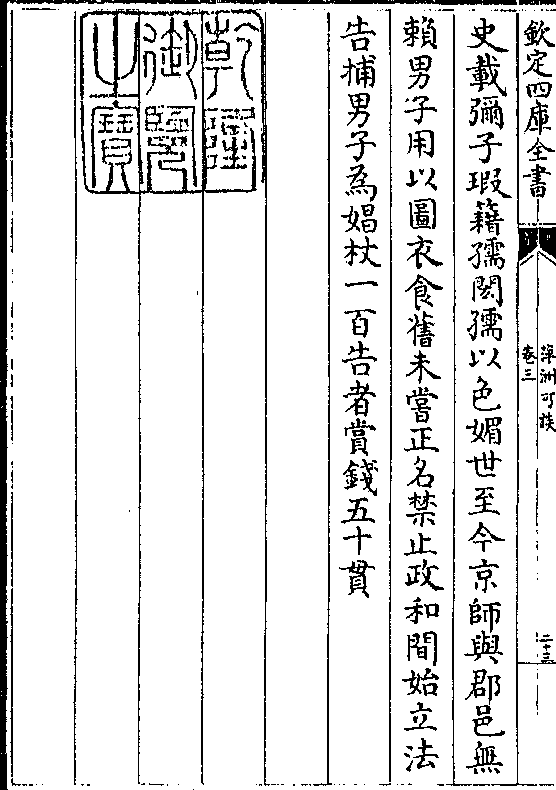 欽定四庫全書
萍洲可談
卷三
二十三
史載彌子瑕籍孺閎孺以色媚世至今京師與郡邑無
賴男子用以圖衣食舊未嘗正名禁止政和間始立法
告捕男子為娼杖一百告者賞錢五十貫
乾隆
御覽
之寶